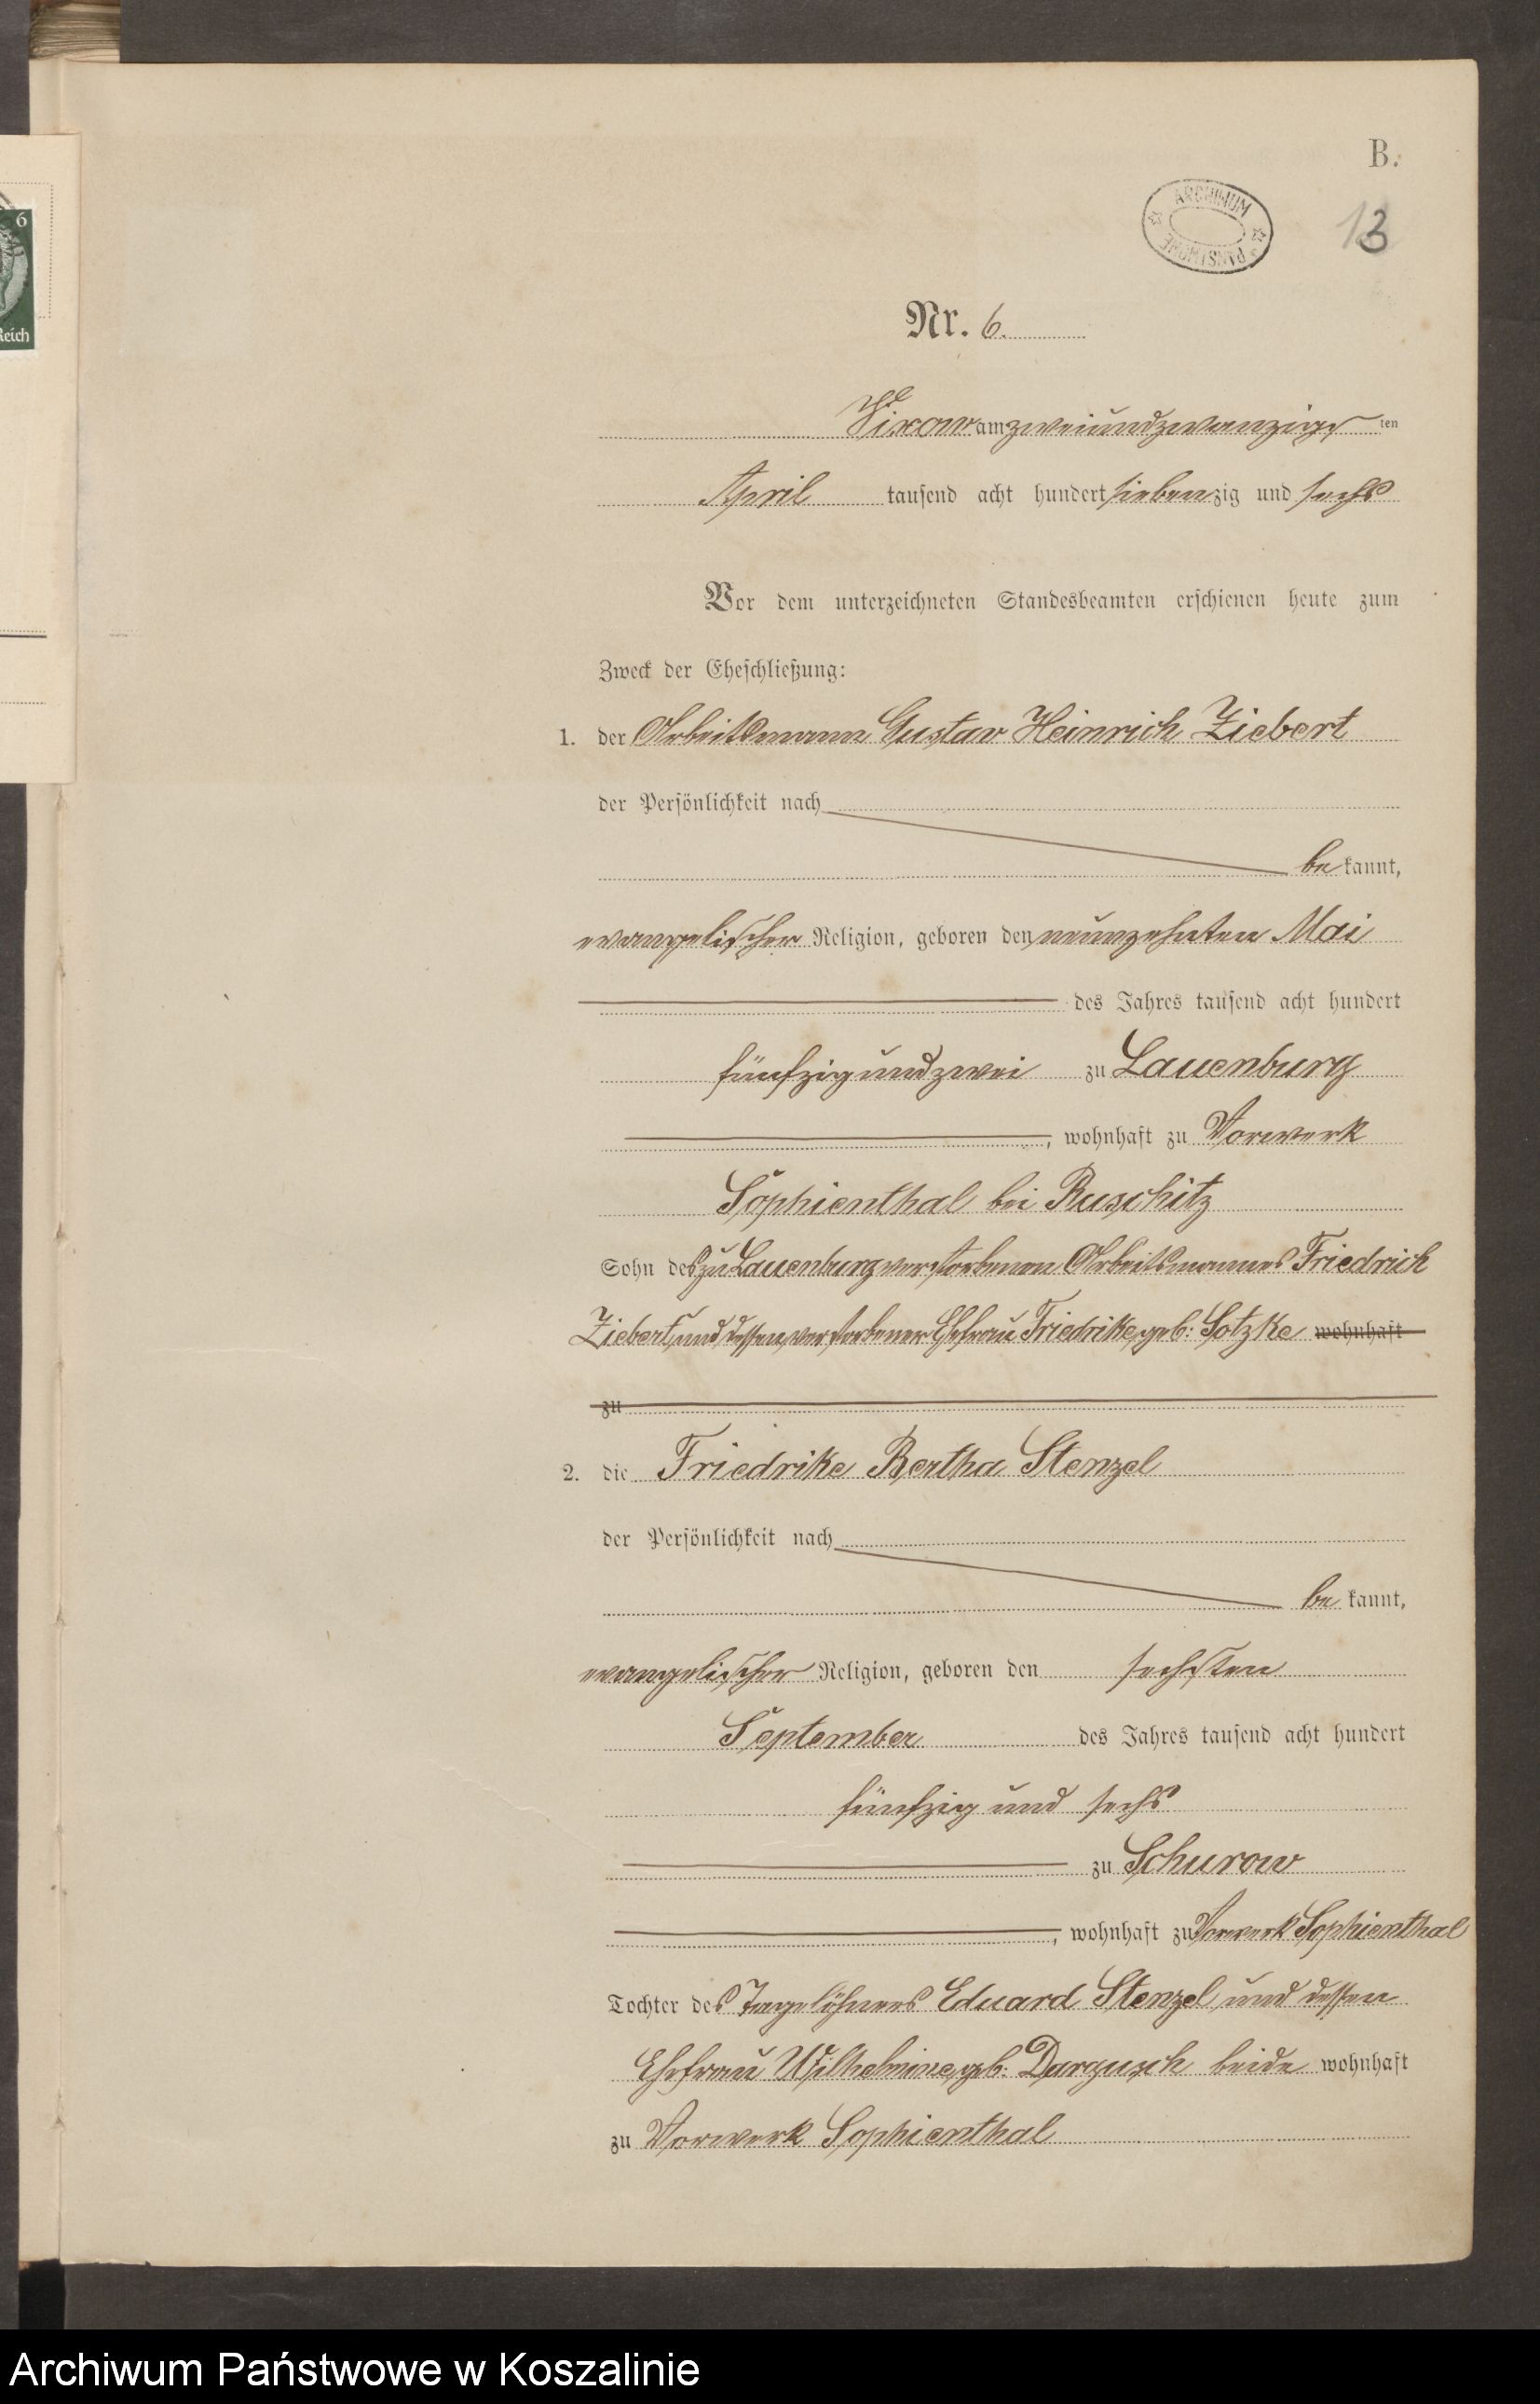 B.
ARCHIWUM
PAŃSTWOWE
13
6
Reich
Nr. 6.
Vixow am zweiundzwanzigsten
April tausend acht hundert siebenzig und sechs
Vor dem unterzeichneten Standesbeamten erschienen heute zum
Zweck der Eheschließung:
1. der Arbeitsmann Gustav Heinrich Ziebert
der Persönlichkeit nach
be kannt,
evangelischer Religion, geboren den neunzehnten Mai
des Jahres tausend acht hundert
fünfzig und zwei zu Lauenburg
, wohnhaft zu Vorwerk
Sophienthal bei Ruschitz
Sohn des zu Lauenburg verstorbenen Arbeitsmannes Friedrich
Ziebert und dessen verstorbener Ehefrau Friedrike, geb: Sotzke wohnhaft
zu
2. die Friedrike Bertha Stenzel
der Persönlichkeit nach
be kannt,
evangelischer Religion, geboren den sechsten
September des Jahres tausend acht hundert
fünfzig und sechs
zu Schurow
, wohnhaft zu Vorwerk Sophienthal
Tochter des Tagelöhners Eduard Stenzel, und dessen
Ehefrau Wilhelmine, geb. Dargusch beide wohnhaft
zu Vorwerk Sophienthal
Archiwum Państwowe w Koszalinie